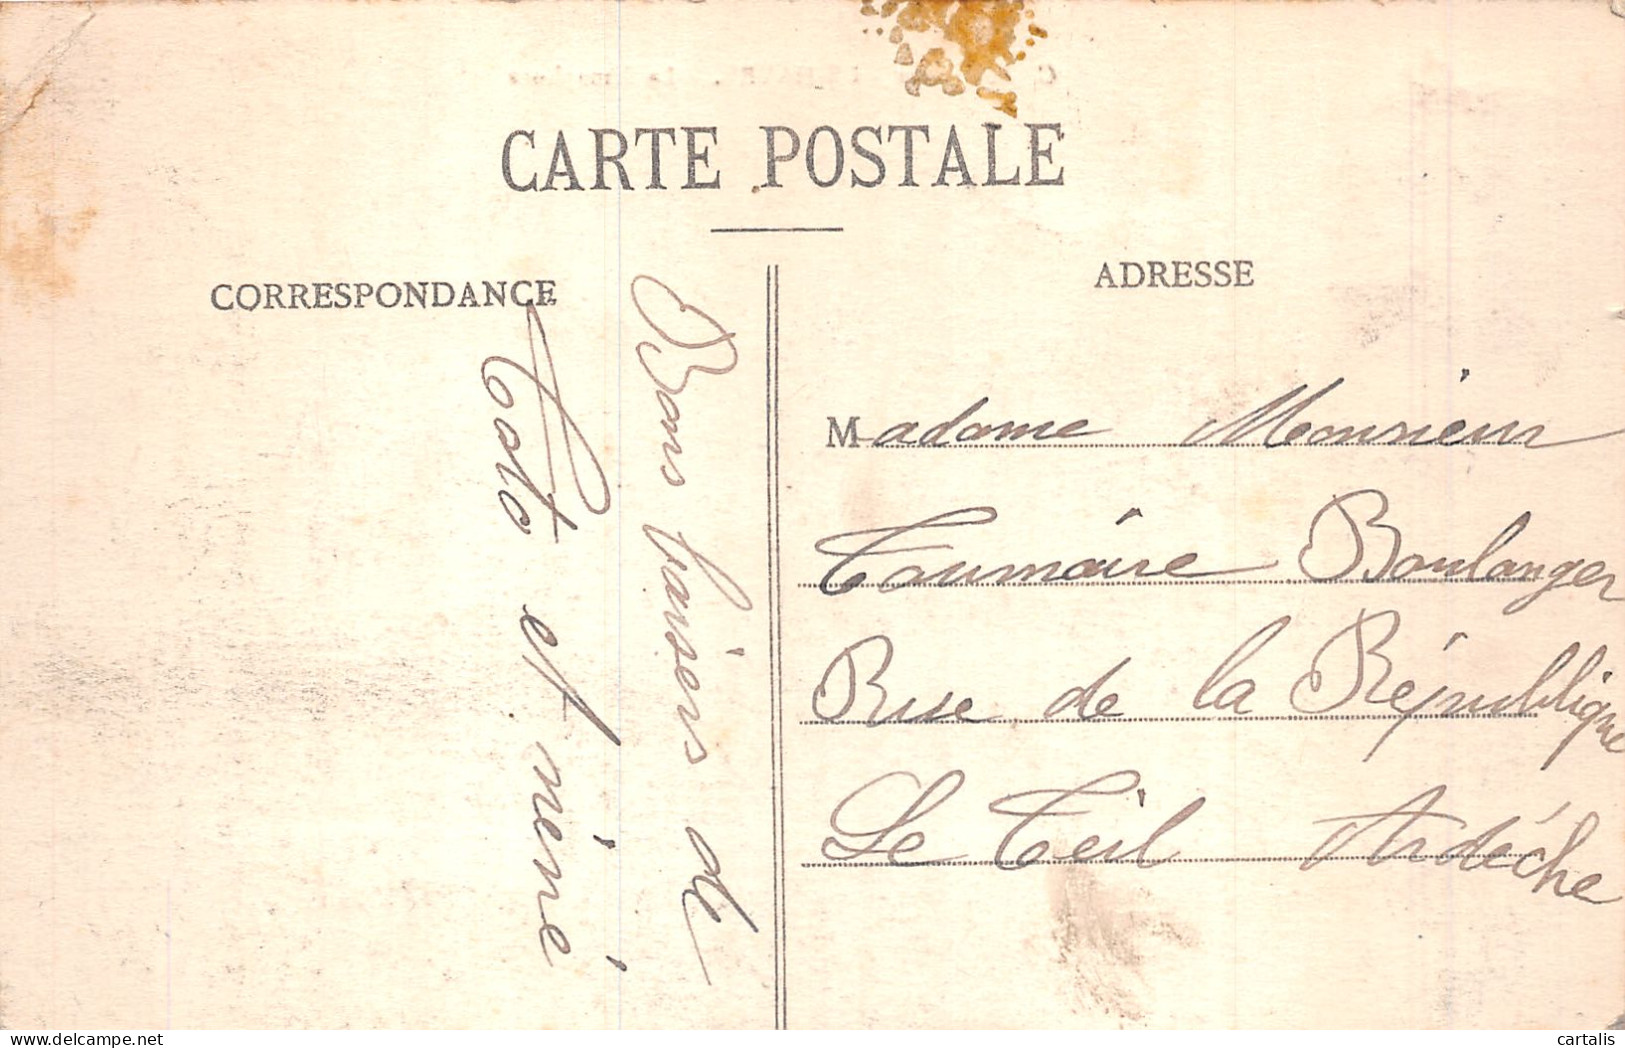 CARTE POSTALE
CORRESPONDANCE
ADRESSE
Bons baisers de
Toto et mémé
Madame Monsieur
Tournaire Boulanger
Rue de la République
Le Teil Ardèche
delcampe.net
cartalis